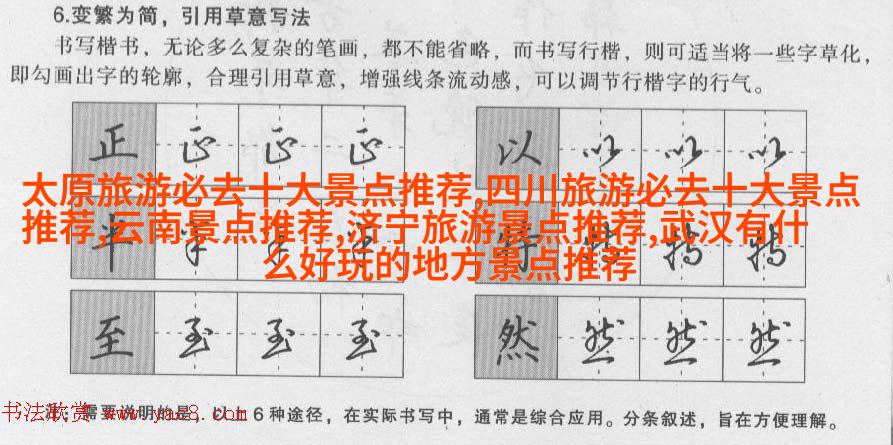 6.变繁为简，引用草意写法
书写楷书，无论多么复杂的笔画，都不能省略，而书写行楷，则可适当将一些字草化，
即勾画出字的轮廓，合理引用草意，增强线条流动感，可以调节行楷字的行气。
正 正 正 正 以 以 以 以
太原旅游必去十大景点推荐,四川旅游必去十大景点
推荐,云南景点推荐,济宁旅游景点推荐,武汉有什
么好玩的地方景点推荐
半 半 半 半 特 特 特 特
至 至 至 至 然 然 然 然
注：需要说明的是，以上6种途径，在实际书写中，通常是综合应用。分条叙述，旨在方便理解。
书法欣赏 www.yac8.com